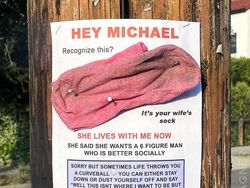 HEY MICHAEL
Recognize this?
It's your wife's
sock
SHE LIVES WITH ME NOW
SHE SAID SHE WANTS A 6 FIGURE MAN
WHO IS BETTER SOCIALLY
SORRY BUT SOMETIMES LIFE THROWS YOU
A CURVEBALL YOU CAN EITHER STAY
DOWN OR DUST YOURSELF OFF AND SAY
"WELL THIS ISNT WHERE I WANT TO BE BUT